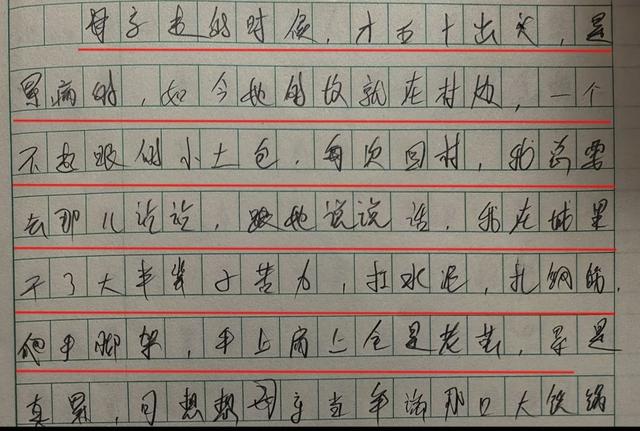 子走的时候，才五十出头，是
累病的，如今她的坟就在村边，一个
不起眼的小土包，每次回村，我总要
去那儿，跟她说说话，我在城里
干了大半辈子苦力，扛水泥，扎钢筋，
爬手脚架，手上肩上全是老茧，累是
真累，可想想当年那口大铁锅